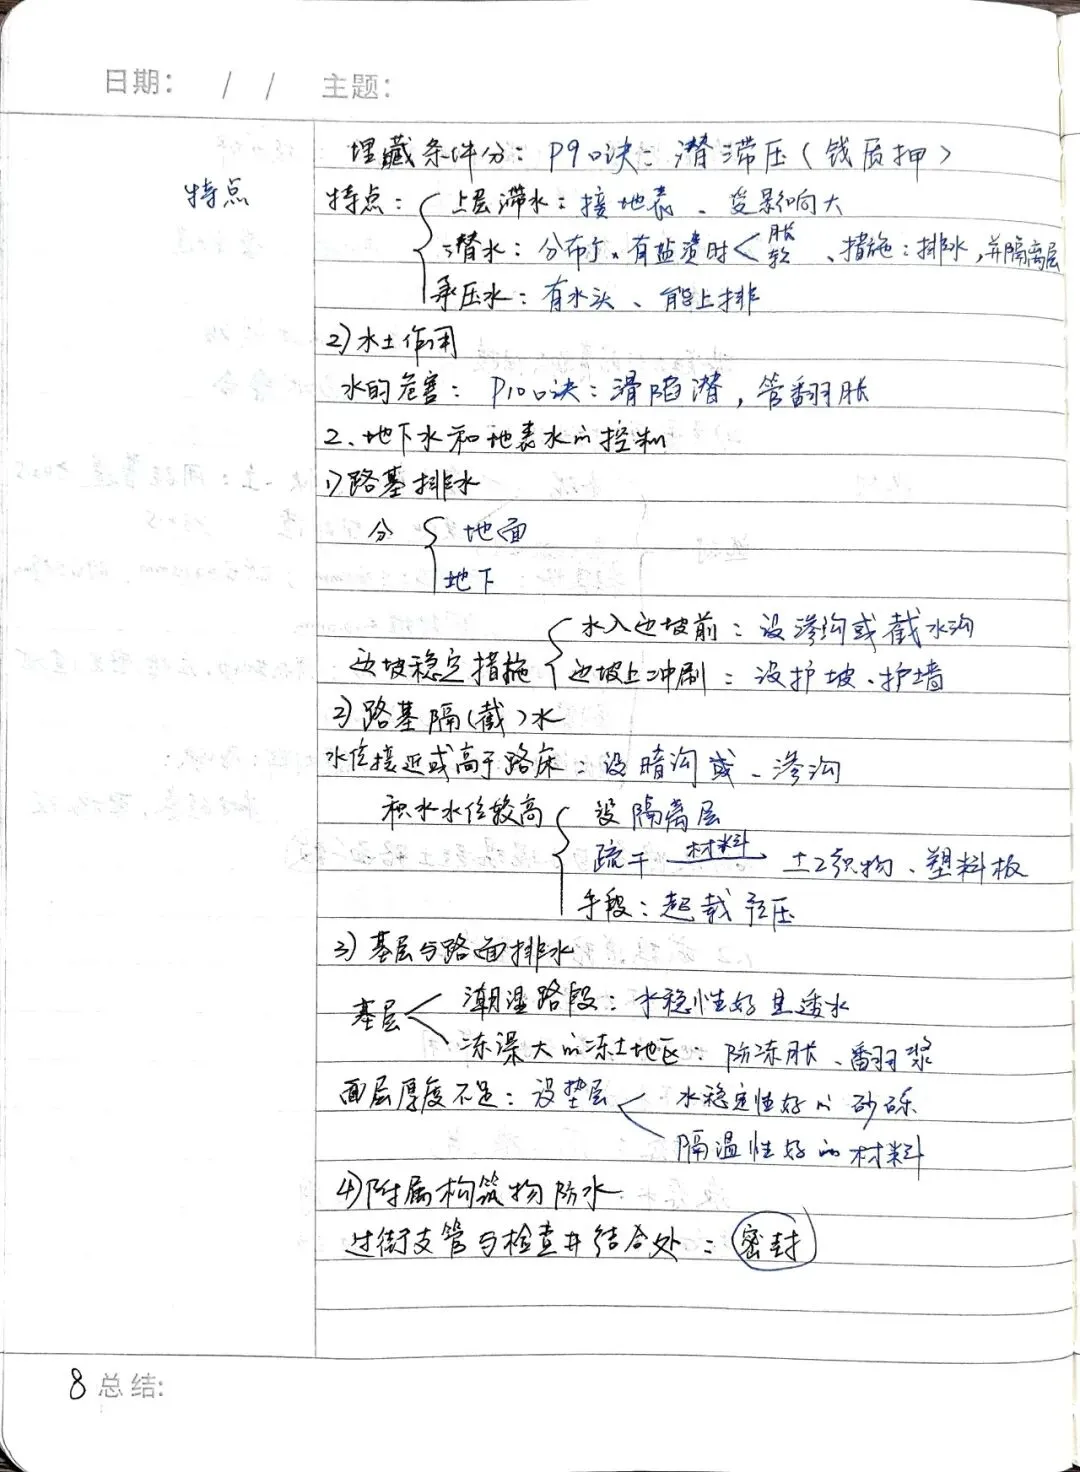 日期： / / 主题：
埋藏条件分：P9口诀：潜滞压（钱质押）
特点
特点：
上层滞水：接地表、受影响大
潜水：分布广、有盐渍时 胀 软 、措施：排水，并隔离层
承压水：有水头、能上排
2)水土作用
水的危害：P10口诀：滑陷潜，管翻胀
2、地下水和地表水的控制
1)路基排水
分
地面
地下
水入边坡前：设渗沟或截水沟
边坡稳定措施
边坡上冲刷：设护坡、护墙
2)路基隔(截)水
水位接近或高于路床：设暗沟或、渗沟
积水水位较高
设隔离层
疏干 材料 土工织物、塑料板
手段：超载预压
3)基层与路面排水
基层
潮湿路段：水稳性好且透水
冻深大的冻土地区：防冻胀、翻浆
面层厚度不足：设垫层
水稳定性好的砂砾
隔温性好的材料
4)附属构筑物防水
过街支管与检查井结合处：密封
8 总结: